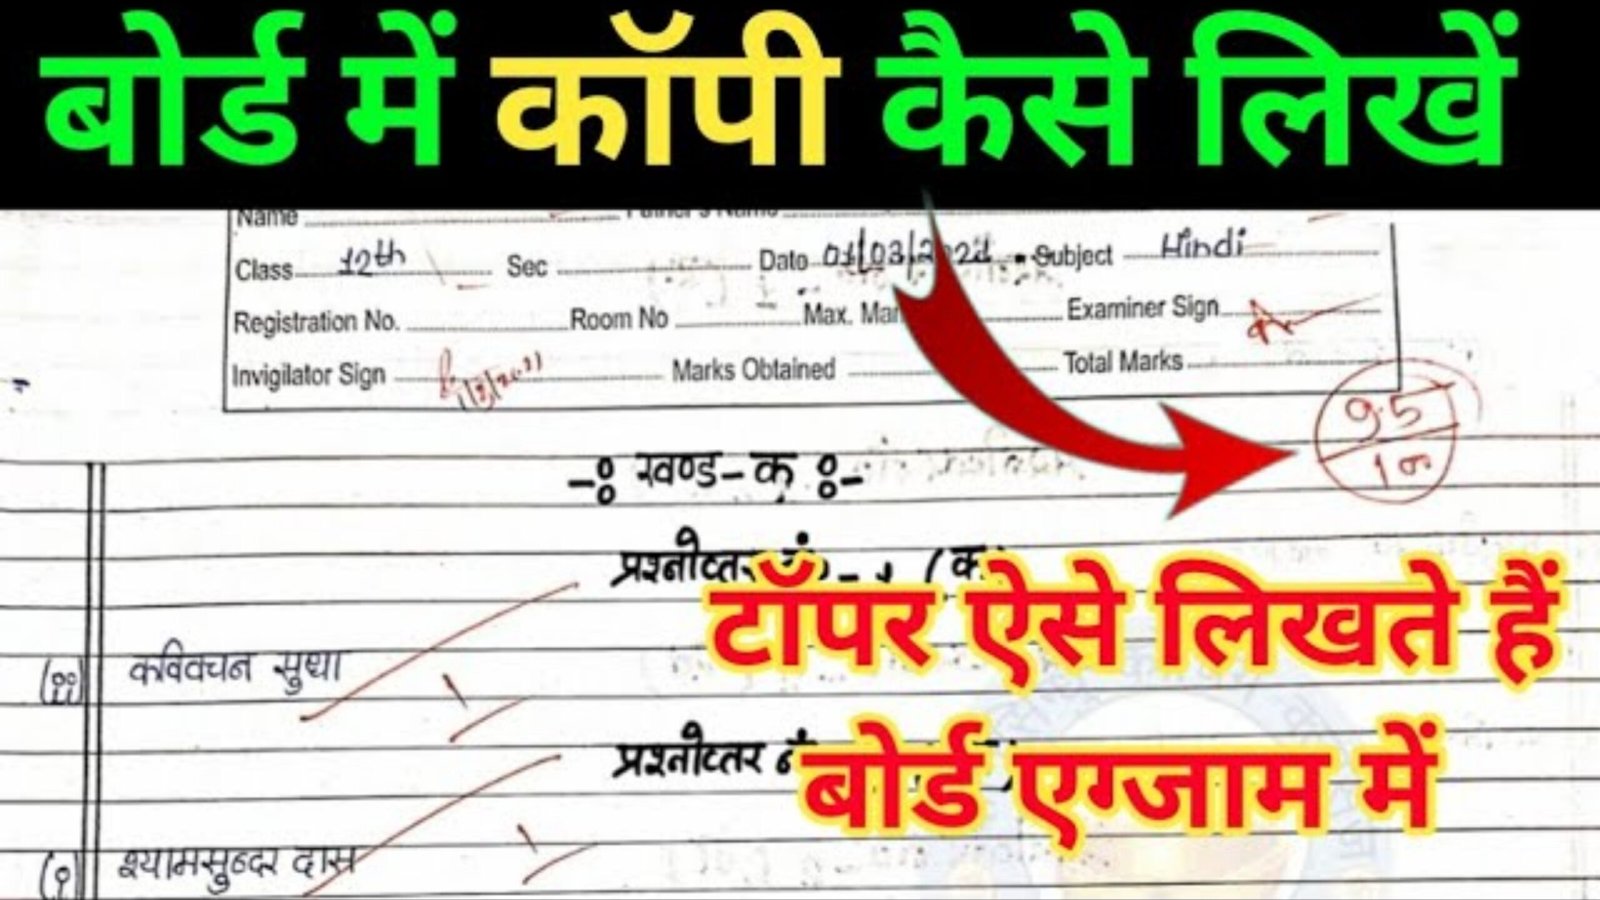 बोर्ड में कॉपी कैसे लिखें
Name Father's Name
Class 12th Sec Date Subject Hindi
Registration No. Room No Max. Examiner Sign
Invigilator Sign Marks Obtained Total Marks
95
-: खण्ड-क :-
प्रश्नोत्तर (क)
टॉपर ऐसे लिखते हैं
कविवचन सुधा
प्रश्नोत्तर
बोर्ड एग्जाम में
(१) श्यामसुन्दर दास